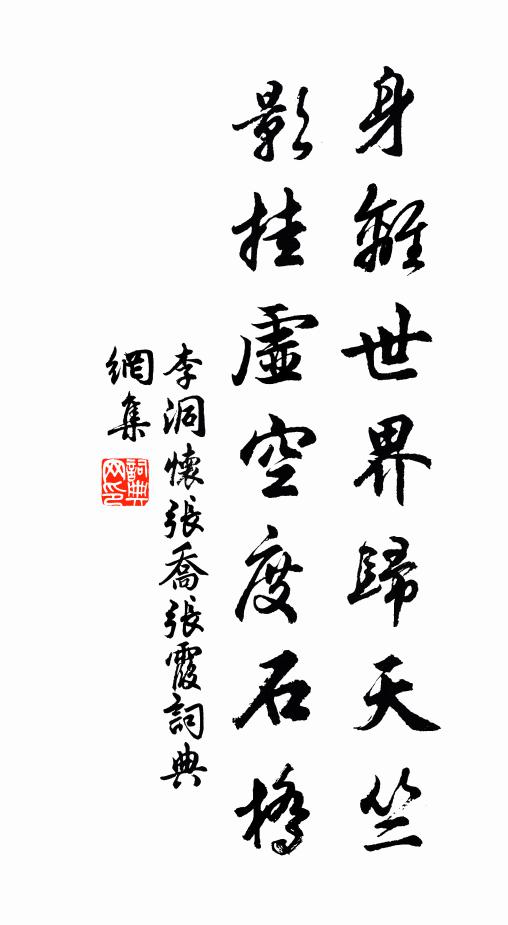 身離世界歸天竺
影挂虛空度石橋
李洞懷張喬張霞詞典
網集
詞典
网印